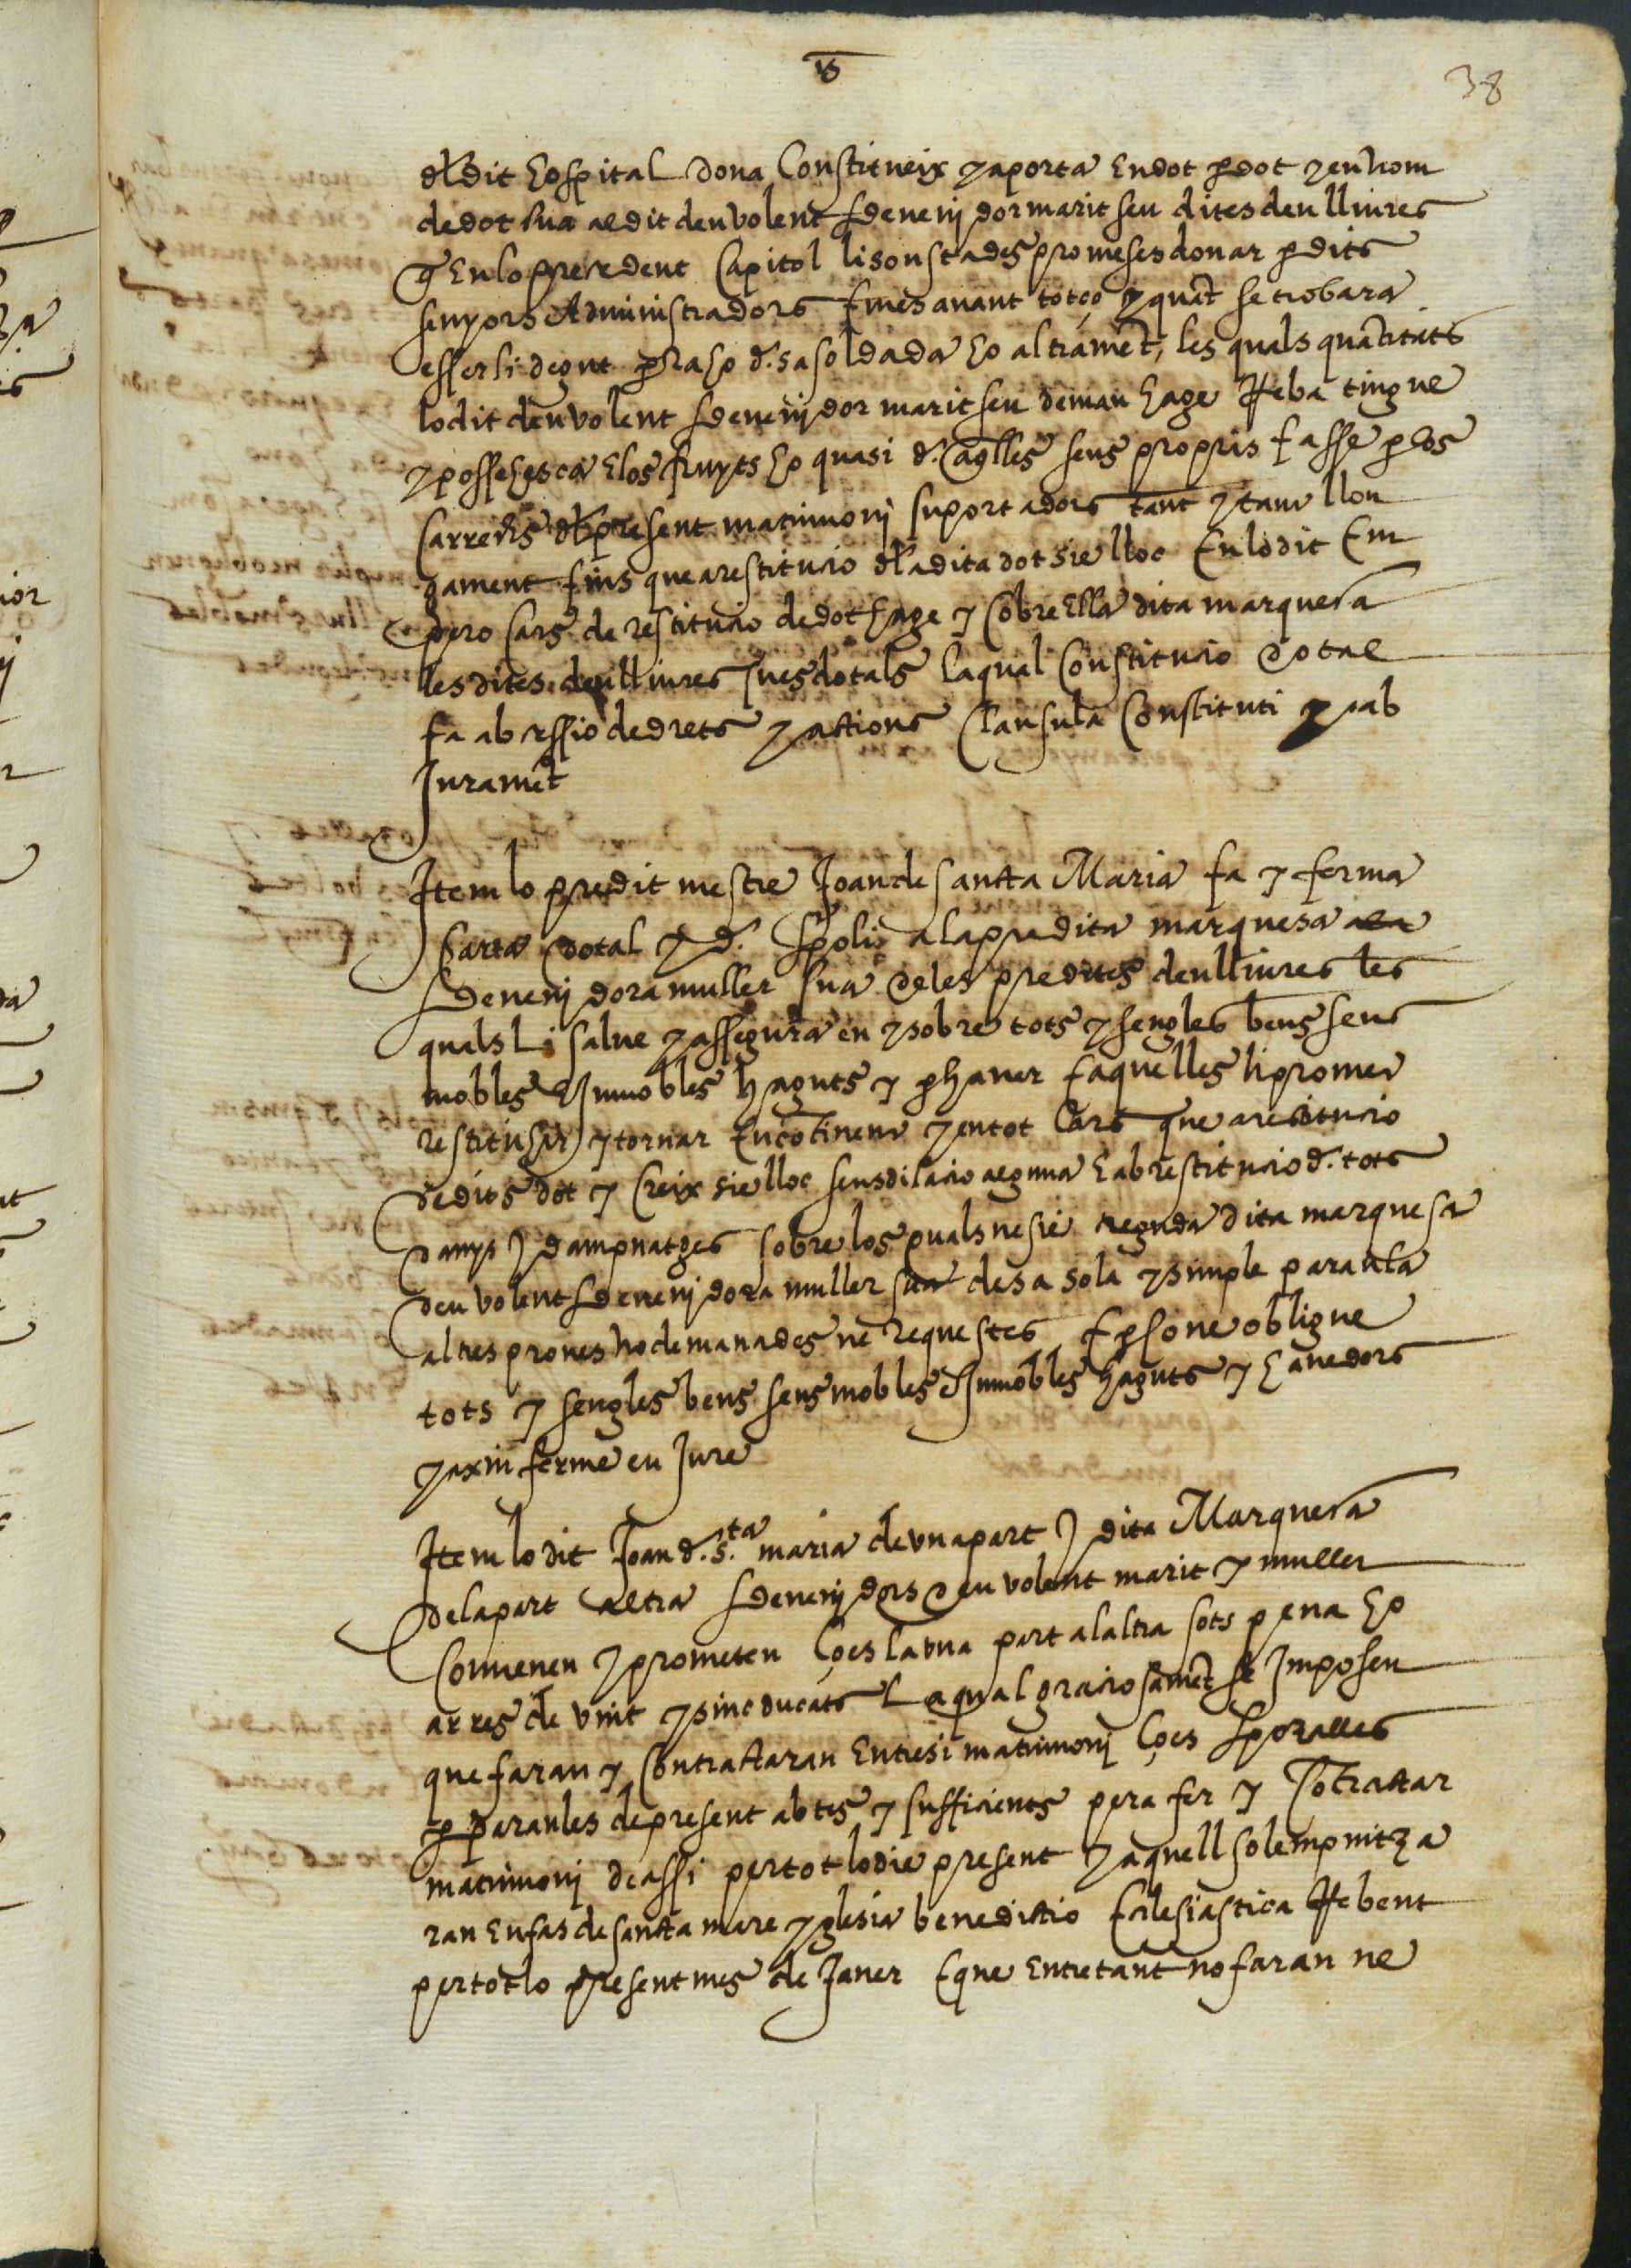 38
dldit hospital dona Constitueix y aporta En dot p dot y en nom
de dot sua al dit deu volent sdevenidor marit seu dites deu lliures
q En lo precedent Capitol li son stades promeses donar p dits
senyors Administradors E mes avant tot ço y quāt se trobara
esser li degut p raho d. sa soldada ho altramēt, les quals quātitats
lo dit deu volent sdevenidor marit seu deman hage Reba tingue
y possehesca E los fruyts ho quasi d. aqlles seus propris fasse p los
Carrechs dl present matrimoni suportadors tant y tant llon
gament fins que a restitucio dla dita dot sie lloc En lo dit Em
pero Cars de restitucio de dot hage y Cobre Ella dita marquesa
les dites deu lliures sues dotals la qual Constitucio dotal
fa ab cessio de drets y actions Clausula Constituti y ab
Juramēt
Item lo predit mestre Joan de sancta Maria fa y ferma
Carta dotal y d. spoli a la predita marquesa
sdevenidora muller sua de les predites deu lliures les
quals li salve y assegura en y sobre tots y sengles bens seus
mobles E Inmobles haguts y p haver E aquelles li promet
restituhir y tornar Encōtinent y en tot Cars que a restitucio
de dits dot y Creix sie lloc sens dilacio alguna E ab restitucio d. tots
danys y dampnatges sobre los quals ne sie creguda dita marquesa
deu volent sdevenidora muller sua de sa sola y simple paraula
altres proves no demanades ne requestes E p so ne obligue
tots y sengles bens seus mobles E Inmobles haguts y havedors
y axi u ferme eu Jure
Item lo dit Joan d. s.ta maria de una part y dita Marquesa
de la part altra sdevenidors deu volent marit y muller
Convenen y prometen ço es la una part a la altra sots pena ho
arres de vint y sinc ducats La qual graciosamēt se Imposen
que faran y Contractaran Entre si matrimoni ço es sporalles
p paraules de present abtes y sufficients pera fer y Cōtractar
matrimoni de assi per tot lo die present y aquell solempnitza
ran En fas de sancta mare yglesia benedictio Eclesiastica Rebent
per tot lo present mes de Janer E que Entretant no faran ne